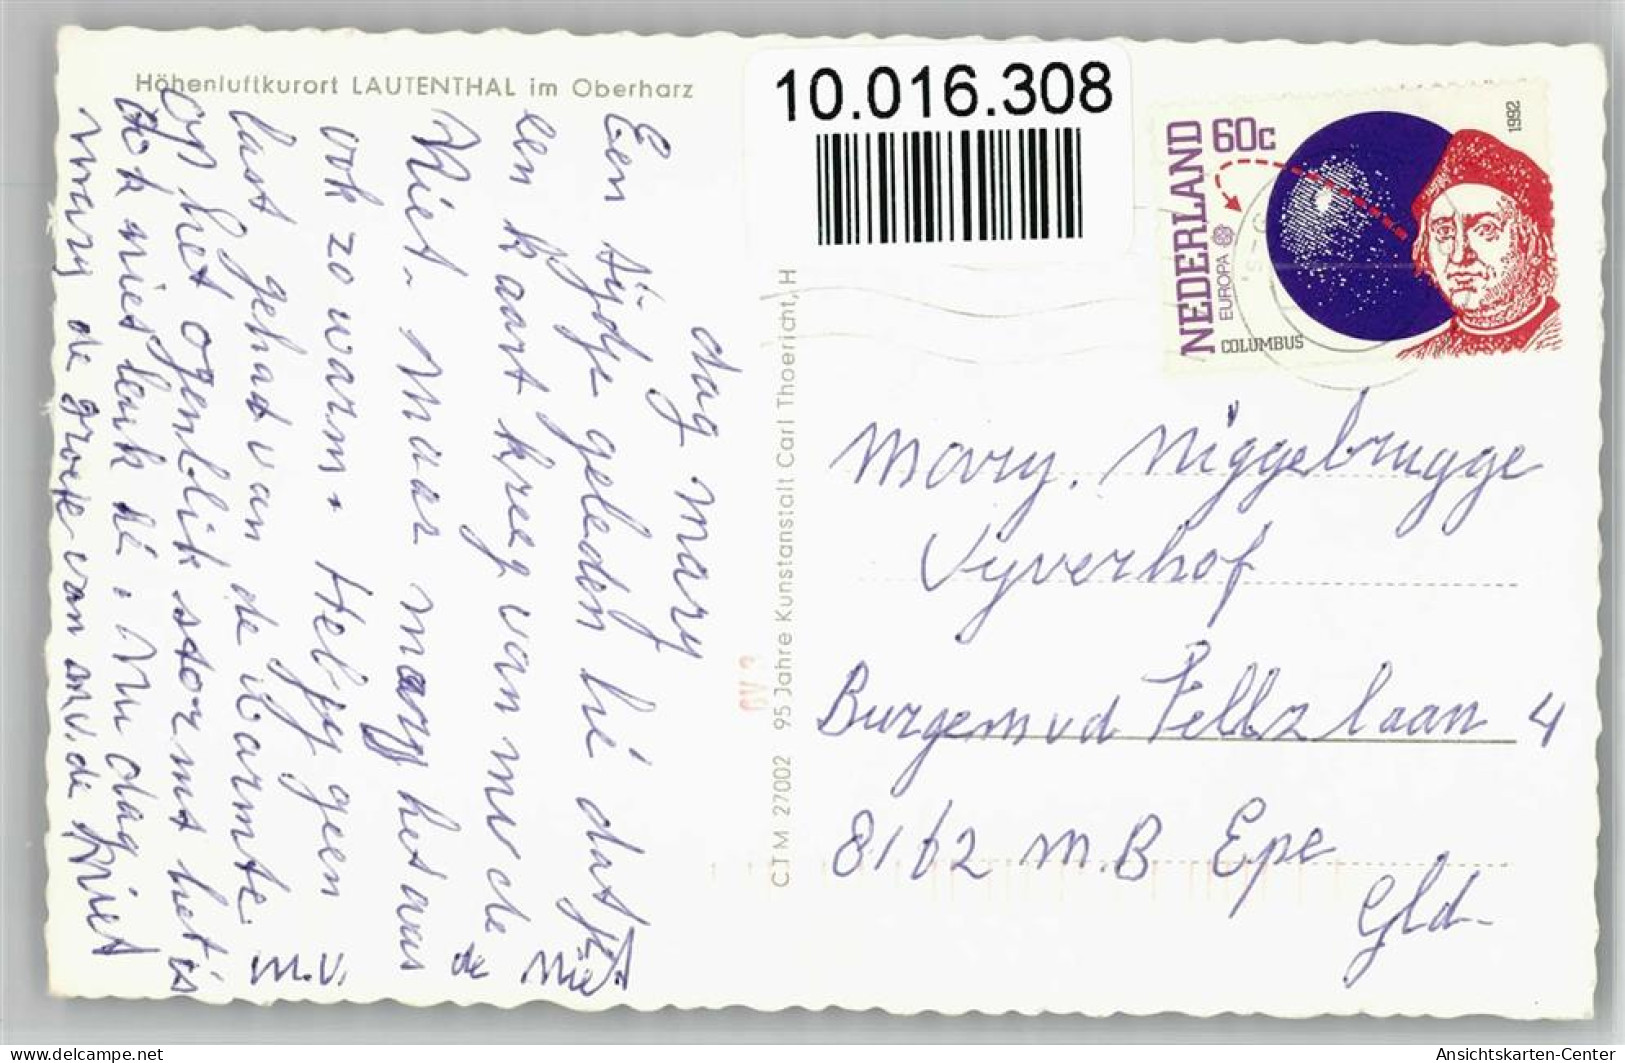 Höhenluftkurort LAUTENTHAL im Oberharz
10.016.308
NEDERLAND
60c
EUROPA
COLUMBUS
1992
dag mary
Een tijdje geleden hé dat je
een kaart kreeg van mw de
Riet. Maar mary het was
ook zo warm. Heb jij geen
last gehad van de warmte.
op het ogenblik stormt het is
ook niet leuk hé. nu dag
mary de groete van mv. de Riet
C.T.M 27002 95 Jahre Kunstanstalt Carl Thoericht, H
Mary. Niggebrugge
Vyverhof
Burgem vd Feltzlaan 4
8162 M.B Epe
Gld.
delcampe.net
Ansichtskarten-Center